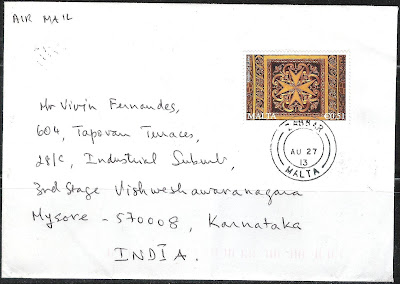 AIR MAIL
MALTA €0.51
Mr Vivin Fernandes,
604, Tapovan Terraces,
28/C, Industrial Suburb,
3rd Stage Vishweshawaranagara
Mysore - 570008, Karnataka
INDIA.
AU 27
13
MALTA